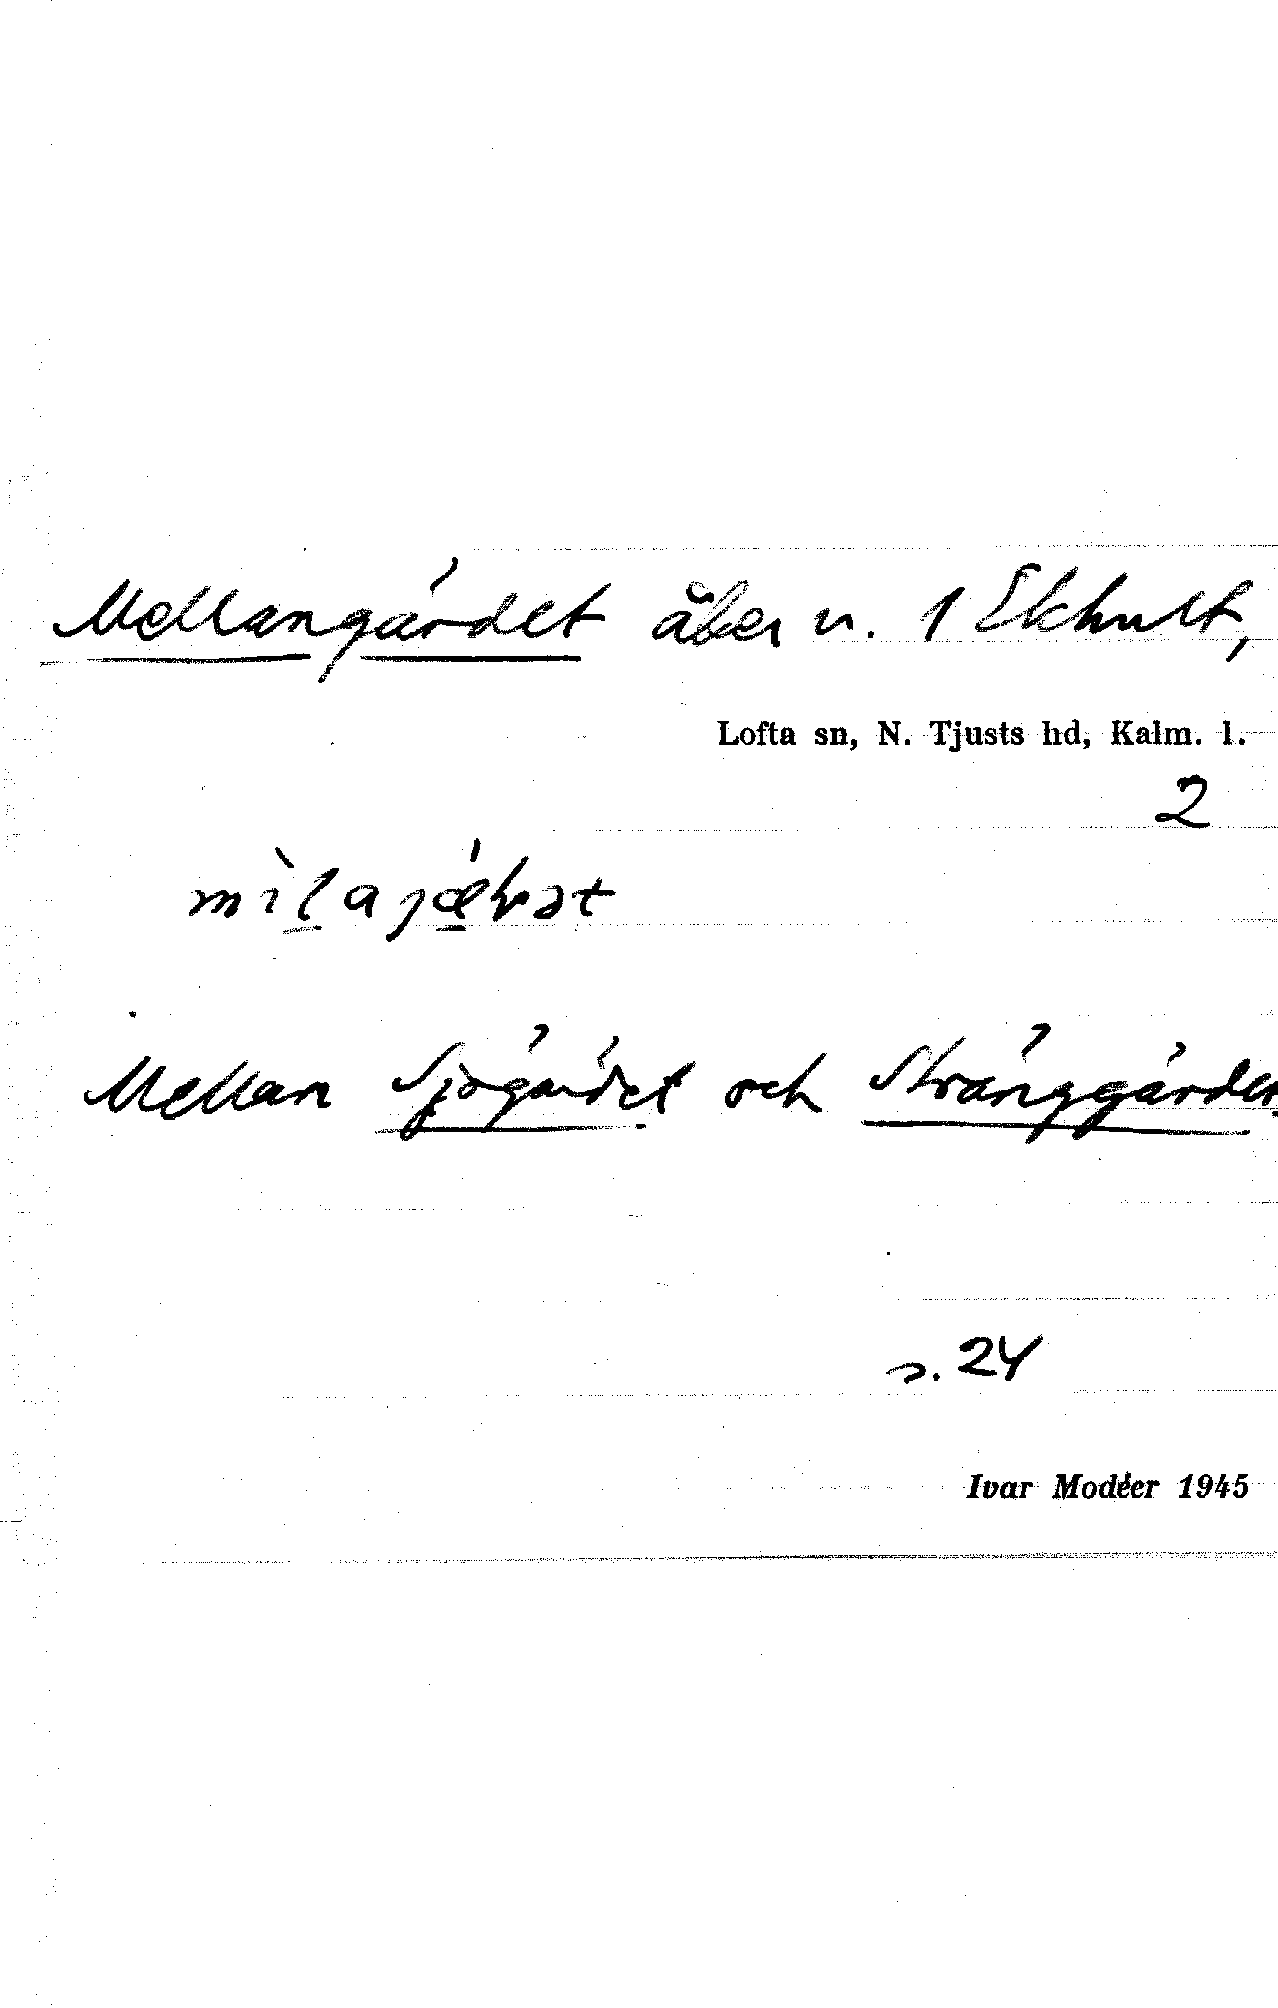 Mellangärdet åker n. 1 Ekhult,
Lofta sn, N. Tjusts hd, Kalm. l.
2
Mellan Sjögärdet och
s. 24
Ivar Modéer 1945